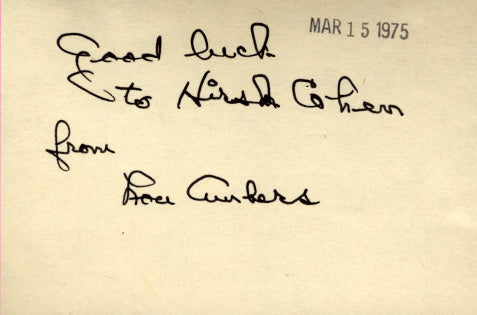 MAR 15 1975
Good luck
to Hirsh Cohen
from
Lou Ambers